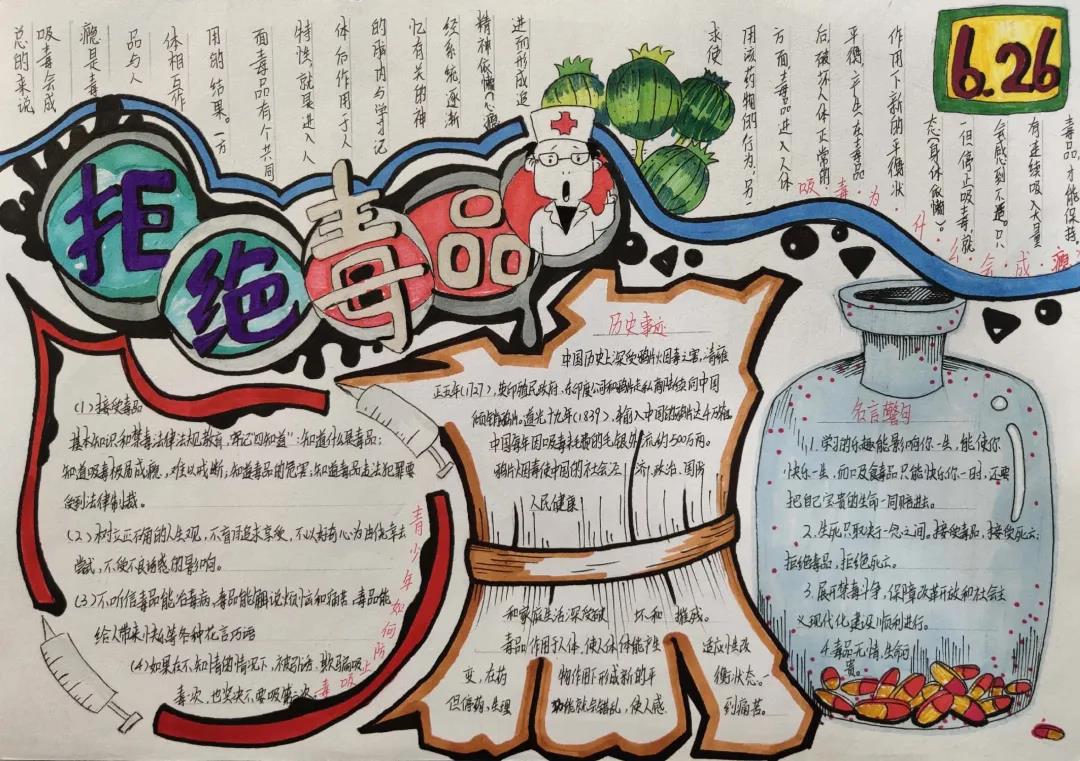 6.26
拒绝毒品
吸毒为什么会成瘾
总的来说
吸毒会成
瘾是毒
品与人
体相互作
用的结果。一方
面毒品有个共同
特性,就是进入人
体后作用于人
的脑内与学习记
忆有关的神
经系统逐渐
精神依懒心瘾
进而形成追
求使
用该药物的行为,另一
方面,毒品进入人体
后破坏人体正常的
平衡,产生在毒品
作用下新的平衡状
态身体依懒。
一但停止吸毒,就
会感到不适。只
有连续吸入大量
毒品,才能保持。
青少年如何防止吸毒
(1)接受毒品
基本知识和禁毒法律法规教育,牢记“四知道”:知道什么是毒品;
知道吸毒极易成瘾,难以戒断;知道毒品的危害;知道毒品违法犯罪要
受到法律制裁。
(2)树立正确的人生观,不盲目追求享受,不以好奇心为由侥幸去
尝试,不受不良诱惑的影响。
(3)不听信毒品能治毒病,毒品能解脱烦恼和痛苦,毒品能
给人带来快乐等各种花言巧语
(4)如果在不知情的情况下,被引诱、欺骗吸
毒一次,也坚决不要吸第二次。
历史事迹
中国历史上深受鸦片烟毒之害,清雍
正五年(1727),英印殖民政府、东印度公司和鸦片走私商陆续向中国
倾销鸦片。道光十九年(1839),输入中国的鸦片达4万箱
中国每年因吸毒耗费的毛银外流约500万两。
鸦片烟毒使中国的社会经济、政治、国防
人民健康
和家庭生活深受破坏和摧残。
毒品作用于人体,使人体体能产生适应性改
变,在药物作用下形成新的平衡状态。一
但停药,生理功能就会错乱,使人感到痛苦。
名言警句
1.学习的乐趣能影响你一生,能使你
快乐一生,而吸食毒品只能快乐你一时,还要
把自己宝贵的生命一同赔进去。
2.生死只取决于一念之间。接受毒品,接受死亡;
拒绝毒品,拒绝死亡。
3.展开禁毒斗争,保障改革开放和社会主
义现代化建设顺利进行。
4.毒品无情,生命可
贵。